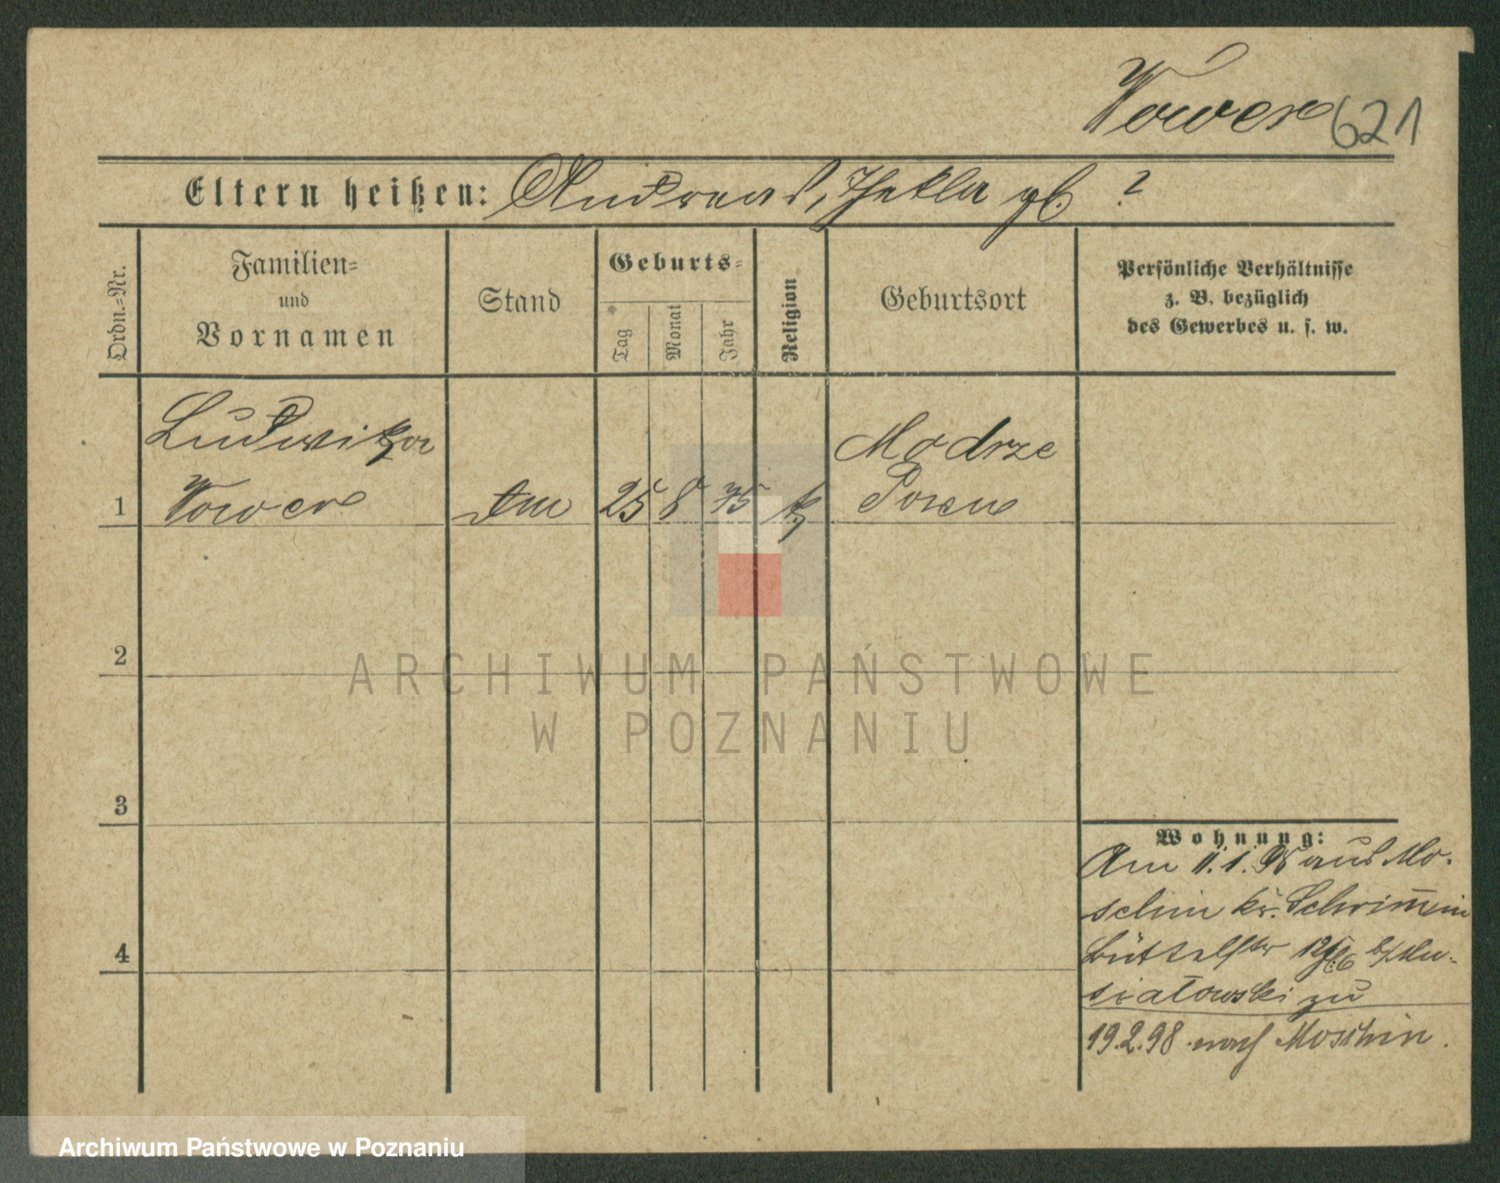 Vower 621
Eltern heißen: Andreas, Thekla gb. ?
Ordn.-Nr.
Familien-
und
Vornamen
Stand
Geburts-
Tag
Monat
Jahr
Religion
Geburtsort
Persönliche Verhältnisse
z. B. bezüglich
des Gewerbes u. s. w.
Ludwika
Modrze
1 Vower 25 8 75 k Posen
2
ARCHIWUM PAŃSTWOWE
W POZNANIU
3
Wohnung:
Am 11.1.98 aus Mo-
schin kr. Schrimm in
4
siatowski zu
19.2.98 nach Moschin.
Archiwum Państwowe w Poznaniu